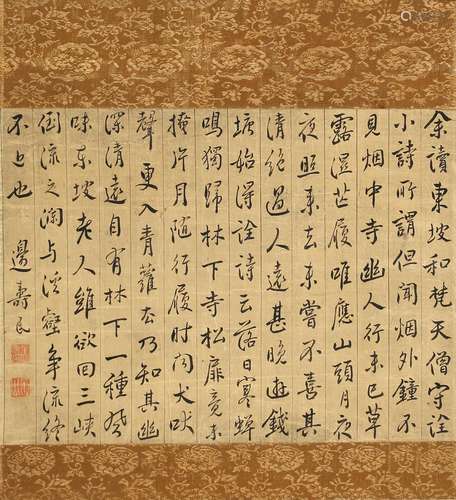 余讀東坡和梵天僧守詮
小詩所謂但聞烟外鐘不
見烟中寺幽人行未已草
露湿芒履唯應山頭月夜
夜照来去未嘗不喜其
清絕過人遠甚晚遊錢
塘始得詮詩云落日寒蟬
鳴獨歸林下寺松扉竟未
掩片月随行履时闻犬吠
聲更入青蘿去乃知其幽
深清遠自有林下一種風
味东坡老人雖欲回三峡
倒流之瀾与溪壑争流终
不也 邊壽民